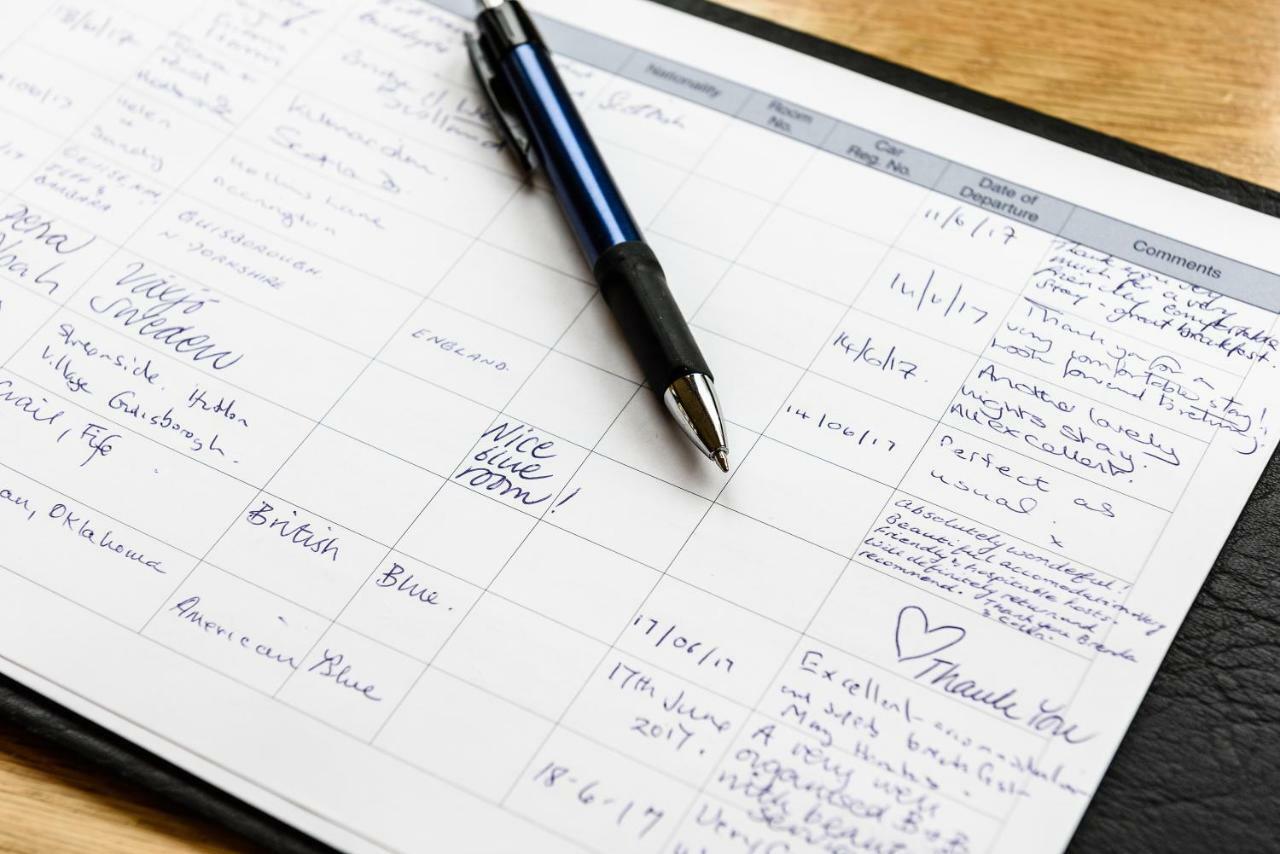 Nationality
Room
No.
Car
Reg. No.
Date of
Departure
Comments
18/6/17
Scottish
11/6/17
Thank you very
much for a very
friendly comfortable
stay - great breakfast.
Helen
Sandy
Kilmarnock.
Scotland.
14/6/17
Thank you for a
very comfortable stay!
look forward to returning
JEFF &
BARBARA
Hollins Lane
Accrington
14/6/17.
Another lovely
nights stay.
All excellent.
GUISBOROUGH
N YORKSHIRE
ENGLAND.
14/06/17
Perfect as
usual.
x
Petra
Noah
Växjö
Sweden
Nice
blue
room!
Absolutely wonderful!
Beautiful accomodation very
friendly & hospitable hosts.
Wide definitely return and
recommend.
Thank you Brenda
& Colin.
Streonside. Hutton
Village Guisborough.
Thank You
Crail, Fife
British
Blue.
17/06/17
Excellent accomodation
and breakfast
Many thanks.
Oklahoma
American
Blue
17th June
2017.
A very well
organised B&B
with
service
18-6-17
Very